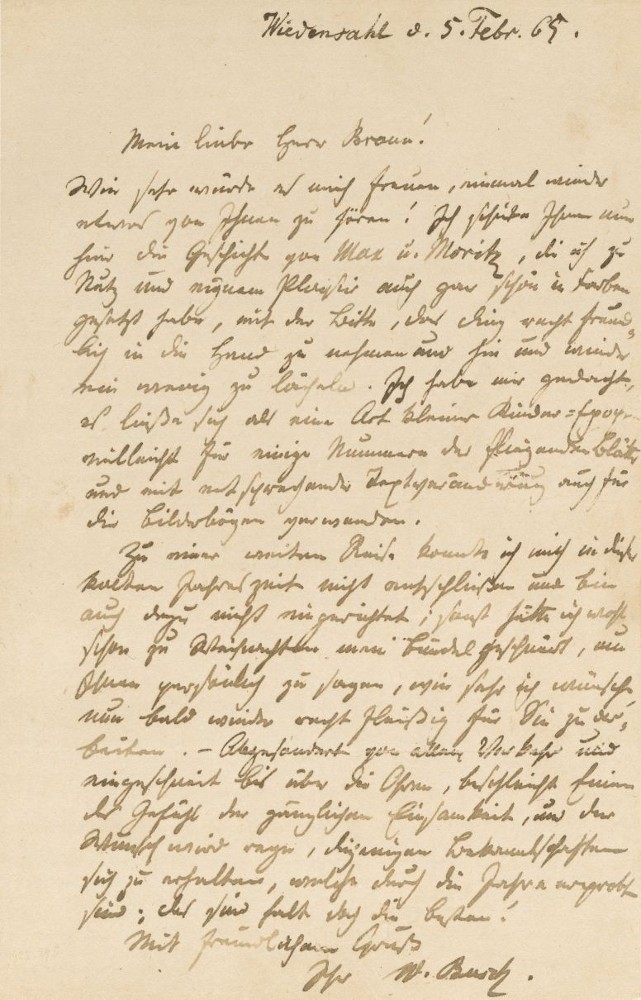 Wiedensahl d. 5. Febr. 65.
Mein lieber Herr Braun!
Wie sehr würde es mich freuen, einmal wieder
etwas von Ihnen zu hören! Ich schicke Ihnen nun
hier die Geschichte von Max u. Moritz, die ich zu
Nutz und eignem Plaisir auch gar schön in Farben
gesetzt habe, mit der Bitte, das Ding recht freund=
lich in die Hand zu nehmen und hin und wieder
ein wenig zu lächeln. Ich habe mir gedacht,
es ließe sich als eine Art kleiner Kinder=Epopoe
vielleicht für einige Nummern der fliegenden Blätter
und mit entsprechender Textveränderung auch für
die Bilderbögen verwenden.
Zu einer weiten Reise konnte ich mich in dieser
kalten Jahreszeit nicht entschließen und bin
auch dazu nicht eingerichtet; sonst hätte ich wohl
schon zu Weihnachten mein Bündel geschnürt, um
Ihnen persönlich zu sagen, wie sehr ich wünsche,
nun bald wieder recht fleißig für Sie zu ar=
beiten. – Abgesondert von allem Verkehr und
eingeschneit bis über die Ohren, beschleicht Einen
das Gefühl der gänzlichen Einsamkeit, und der
Wunsch wird rege, diejenigen Bekanntschaften
sich zu erhalten, welche durch die Jahre erprobt
sind; das sind halt doch die besten!
Mit freundlichem Gruß
Ihr W. Busch.